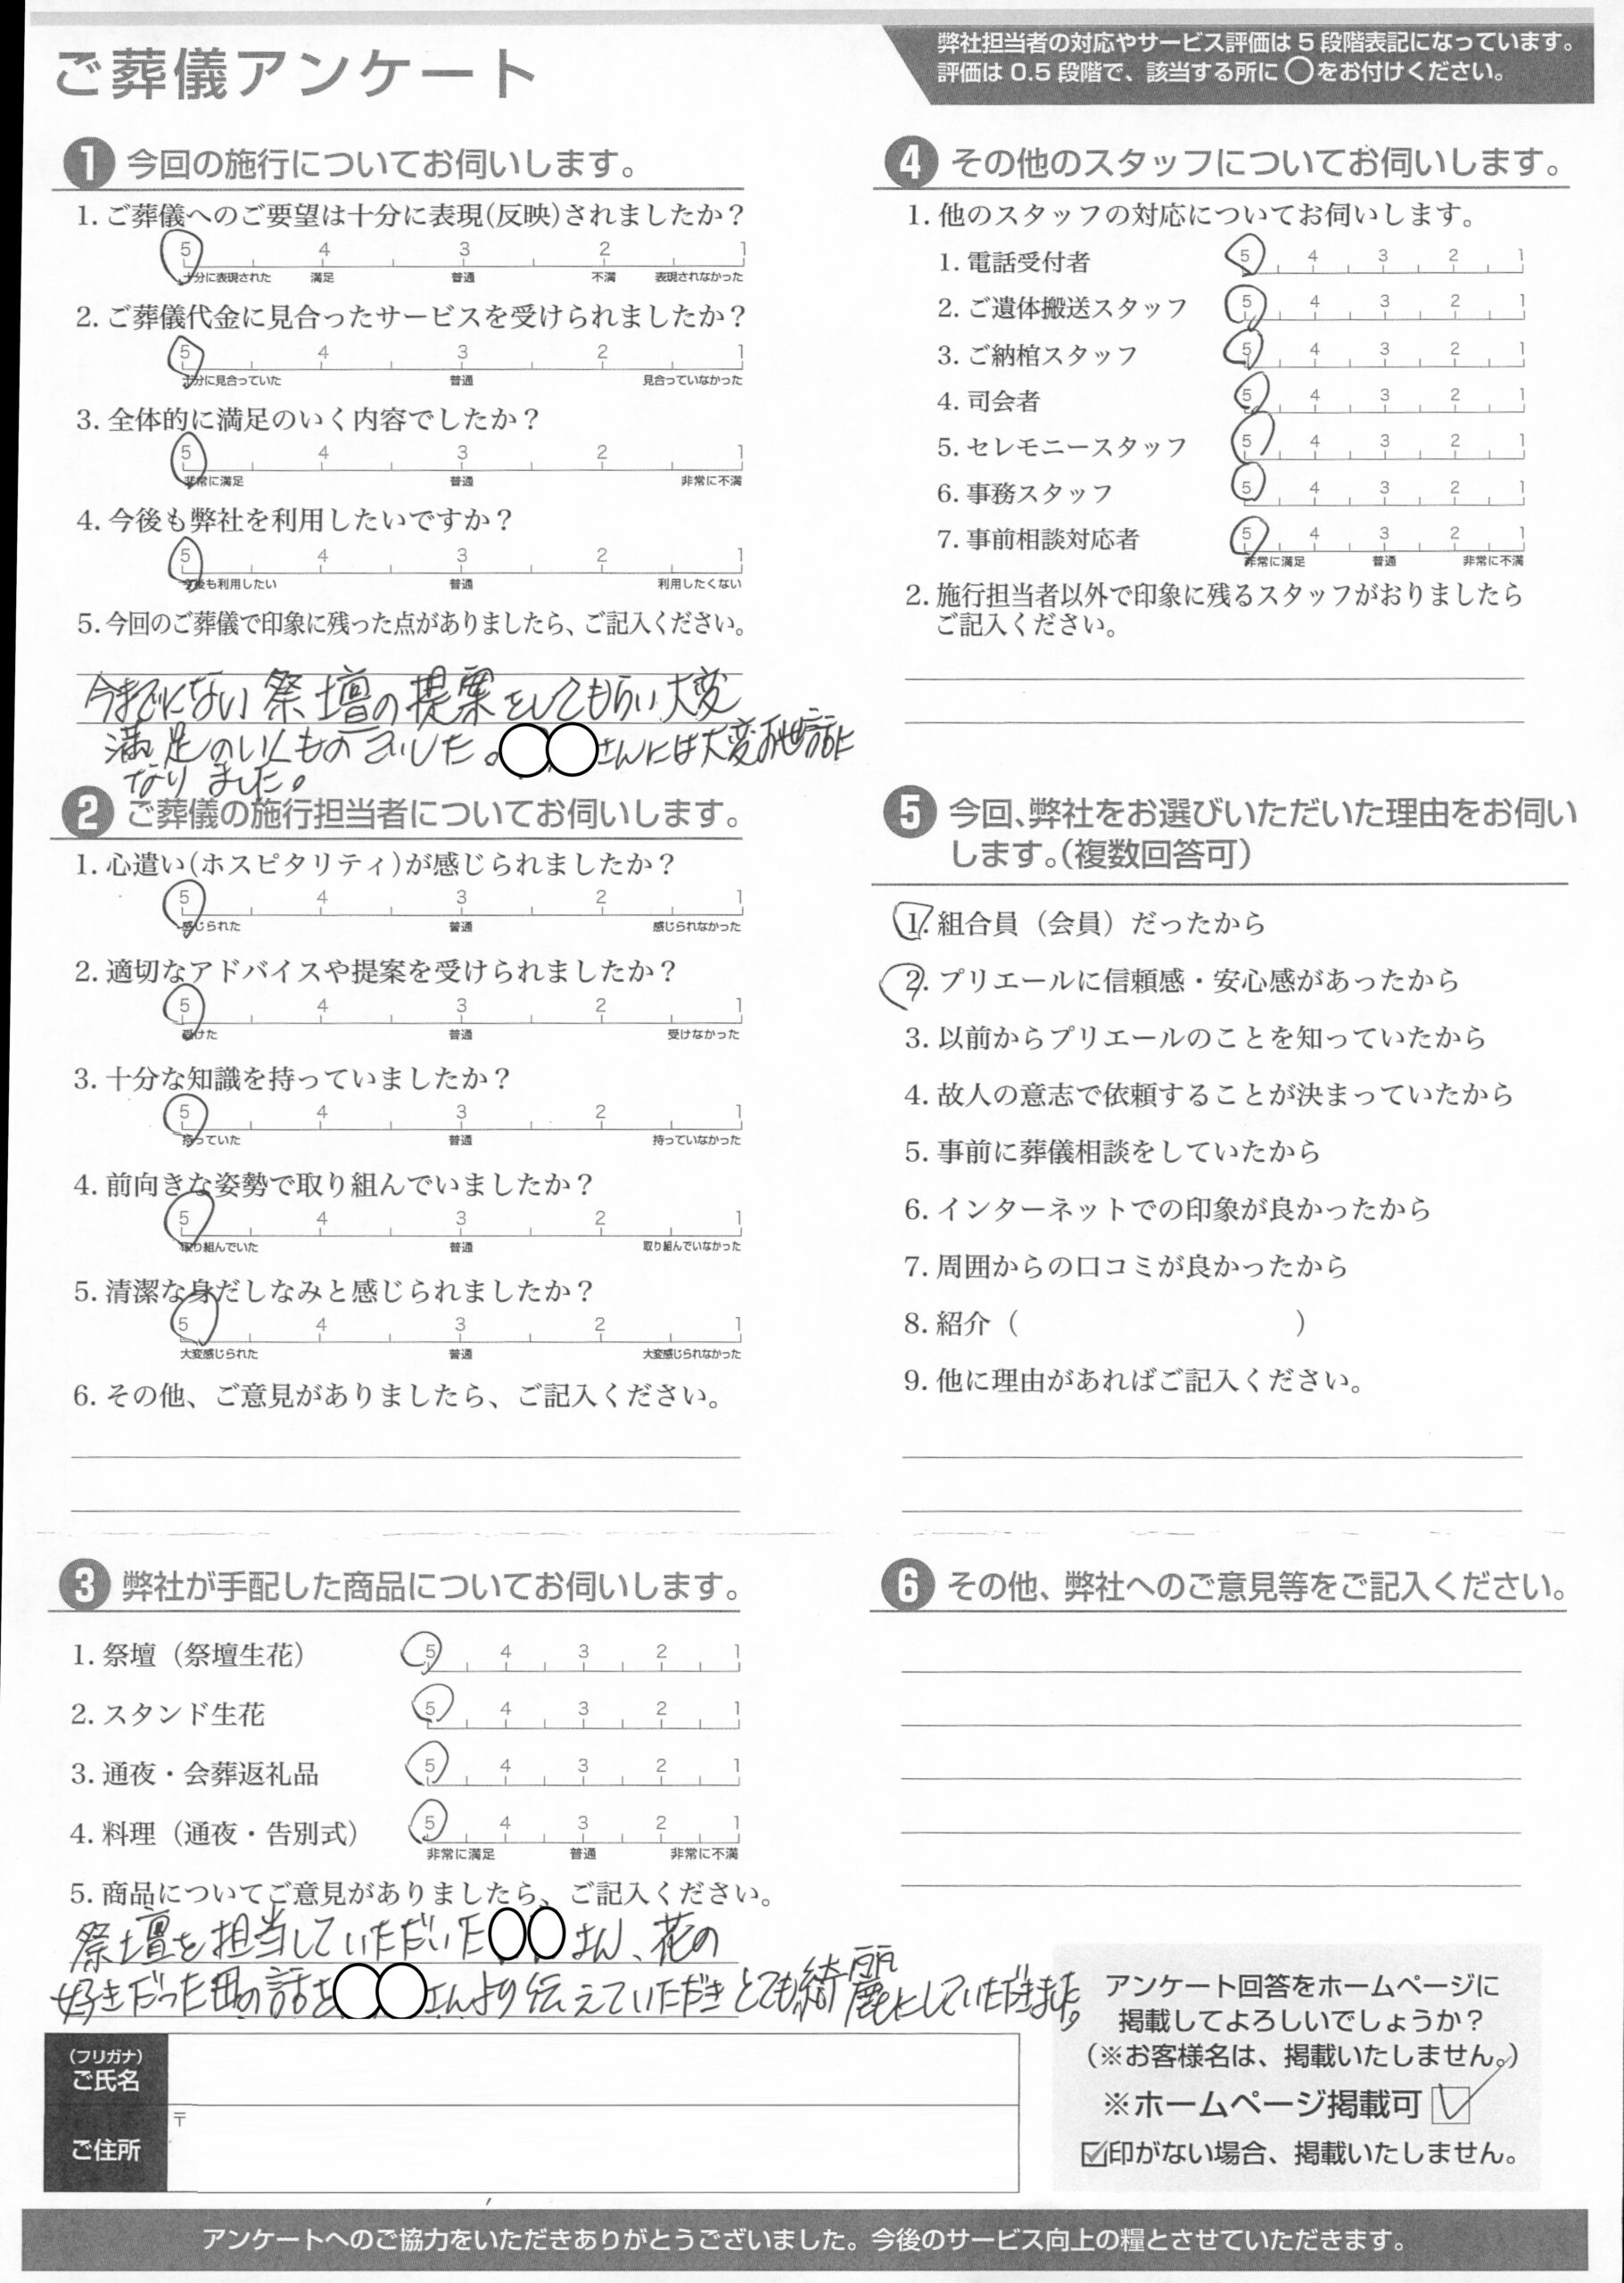 ご葬儀アンケート
弊社担当者の対応やサービス評価は 5 段階表記になっています。
評価は 0.5 段階で、該当する所に ○をお付けください。
1 今回の施行についてお伺いします。
1. ご葬儀へのご要望は十分に表現(反映)されましたか？
5 4 3 2 1
十分に表現された 満足 普通 不満 表現されなかった
2. ご葬儀代金に見合ったサービスを受けられましたか？
5 4 3 2 1
十分に見合っていた 普通 見合っていなかった
3. 全体的に満足のいく内容でしたか？
5 4 3 2 1
非常に満足 普通 非常に不満
4. 今後も弊社を利用したいですか？
5 4 3 2 1
今後も利用したい 普通 利用したくない
5. 今回のご葬儀で印象に残った点がありましたら、ご記入ください。
今までにない祭壇の提案をしてもらい大変
満足のいくものでした。○○さんには大変お世話に
なりました。
2 ご葬儀の施行担当者についてお伺いします。
1. 心遣い(ホスピタリティ)が感じられましたか？
5 4 3 2 1
感じられた 普通 感じられなかった
2. 適切なアドバイスや提案を受けられましたか？
5 4 3 2 1
受けた 普通 受けなかった
3. 十分な知識を持っていましたか？
5 4 3 2 1
持っていた 普通 持っていなかった
4. 前向きな姿勢で取り組んでいましたか？
5 4 3 2 1
取り組んでいた 普通 取り組んでいなかった
5. 清潔な身だしなみと感じられましたか？
5 4 3 2 1
大変感じられた 普通 大変感じられなかった
6. その他、ご意見がありましたら、ご記入ください。
3 弊社が手配した商品についてお伺いします。
1. 祭壇（祭壇生花） 5 4 3 2 1
2. スタンド生花 5 4 3 2 1
3. 通夜・会葬返礼品 5 4 3 2 1
4. 料理（通夜・告別式） 5 4 3 2 1
非常に満足 普通 非常に不満
5. 商品についてご意見がありましたら、ご記入ください。
祭壇を担当していただいた○○さん、花の
好きだった母の話を○○さんより伝えていただきとても綺麗にしていただきました。
4 その他のスタッフについてお伺いします。
1. 他のスタッフの対応についてお伺いします。
1. 電話受付者 5 4 3 2 1
2. ご遺体搬送スタッフ 5 4 3 2 1
3. ご納棺スタッフ 5 4 3 2 1
4. 司会者 5 4 3 2 1
5. セレモニースタッフ 5 4 3 2 1
6. 事務スタッフ 5 4 3 2 1
7. 事前相談対応者 5 4 3 2 1
非常に満足 普通 非常に不満
2. 施行担当者以外で印象に残るスタッフがおりましたら
ご記入ください。
5 今回、弊社をお選びいただいた理由をお伺い
します。（複数回答可）
1. 組合員（会員）だったから
2. プリエールに信頼感・安心感があったから
3. 以前からプリエールのことを知っていたから
4. 故人の意志で依頼することが決まっていたから
5. 事前に葬儀相談をしていたから
6. インターネットでの印象が良かったから
7. 周囲からの口コミが良かったから
8. 紹介（ ）
9. 他に理由があればご記入ください。
6 その他、弊社へのご意見等をご記入ください。
（フリガナ）
ご氏名
〒
ご住所
アンケート回答をホームページに
掲載してよろしいでしょうか？
（※お客様名は、掲載いたしません。）
※ホームページ掲載可
☑印がない場合、掲載いたしません。
アンケートへのご協力をいただきありがとうございました。今後のサービス向上の糧とさせていただきます。